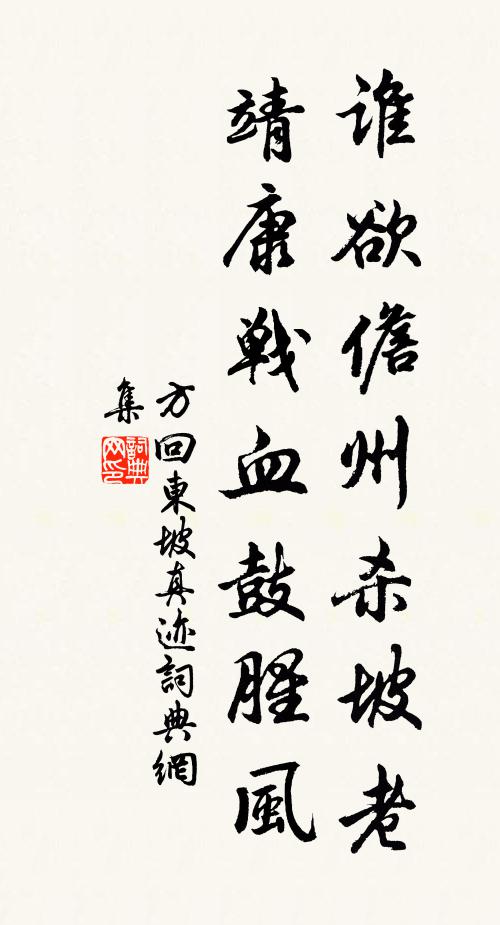 谁欲儋州杀坡老
靖康戦血鼓腥風
方回東坡真迹詞典網
集
詞典
网印